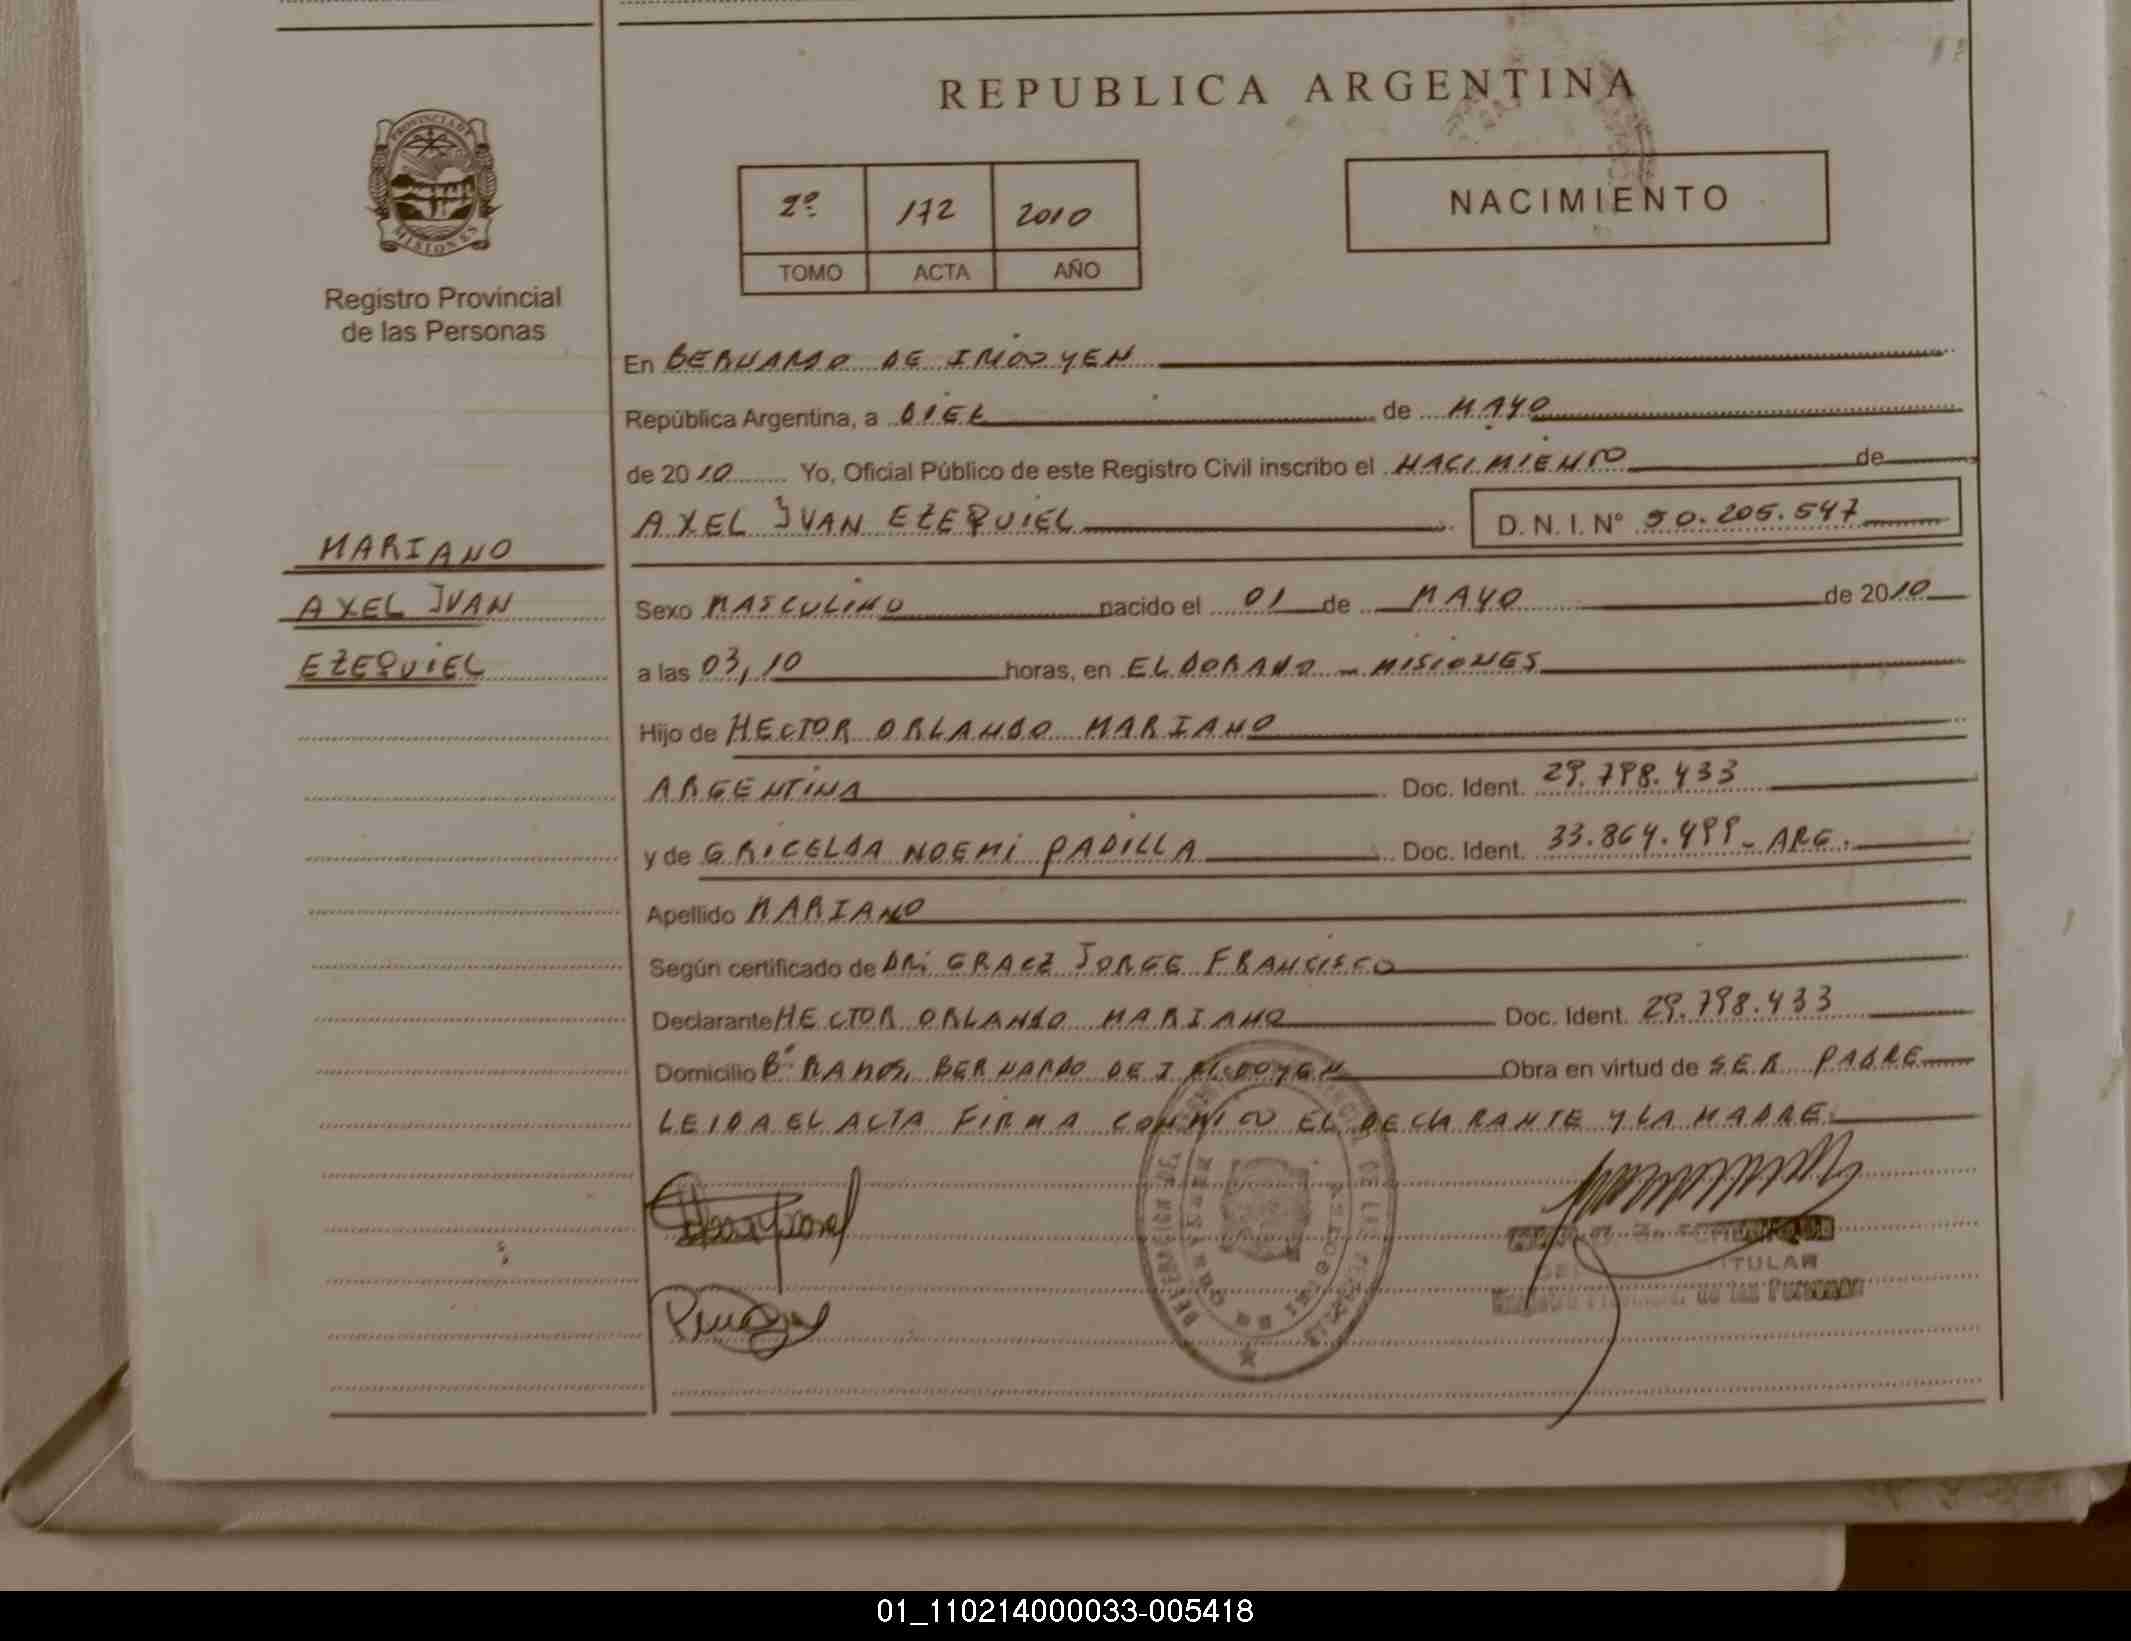 REPUBLICA ARGENTINA
PROVINCIA DE
MISIONES
Registro Provincial
de las Personas
2º 172 2010
TOMO ACTA AÑO
NACIMIENTO
En BERNARDO DE IRIGOYEN
República Argentina, a DIEZ de MAYO
de 2010 Yo, Oficial Público de este Registro Civil inscribo el NACIMIENTO de
AXEL IVAN EZEQUIEL D. N. I. Nº 50.205.547
MARIANO
AXEL IVAN
EZEQUIEL
Sexo MASCULINO nacido el 01 de MAYO de 2010
a las 03,10 horas, en ELDORADO - MISIONES
Hijo de HECTOR ORLANDO MARIANO
ARGENTINA Doc. Ident. 29.798.433
y de GRICELDA NOEMI PADILLA Doc. Ident. 33.864.499 - ARG.
Apellido MARIANO
Según certificado de JORGE FRANCISCO
Declarante HECTOR ORLANDO MARIANO Doc. Ident. 29.798.433
Domicilio Bº RAMOS, BERNARDO DE IRIGOYEN Obra en virtud de SER PADRE
LEIDA EL ACTA FIRMA CONMIGO EL DECLARANTE Y LA MADRE.
TITULAR
de las Personas
01_110214000033-005418